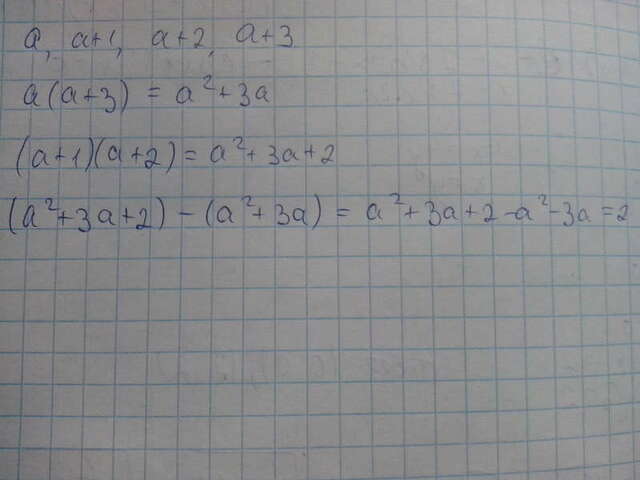 a, a+1, a+2, a+3
a(a+3) = a²+3a
(a+1)(a+2) = a²+3a+2
(a²+3a+2) - (a²+3a) = a²+3a+2-a²-3a=2